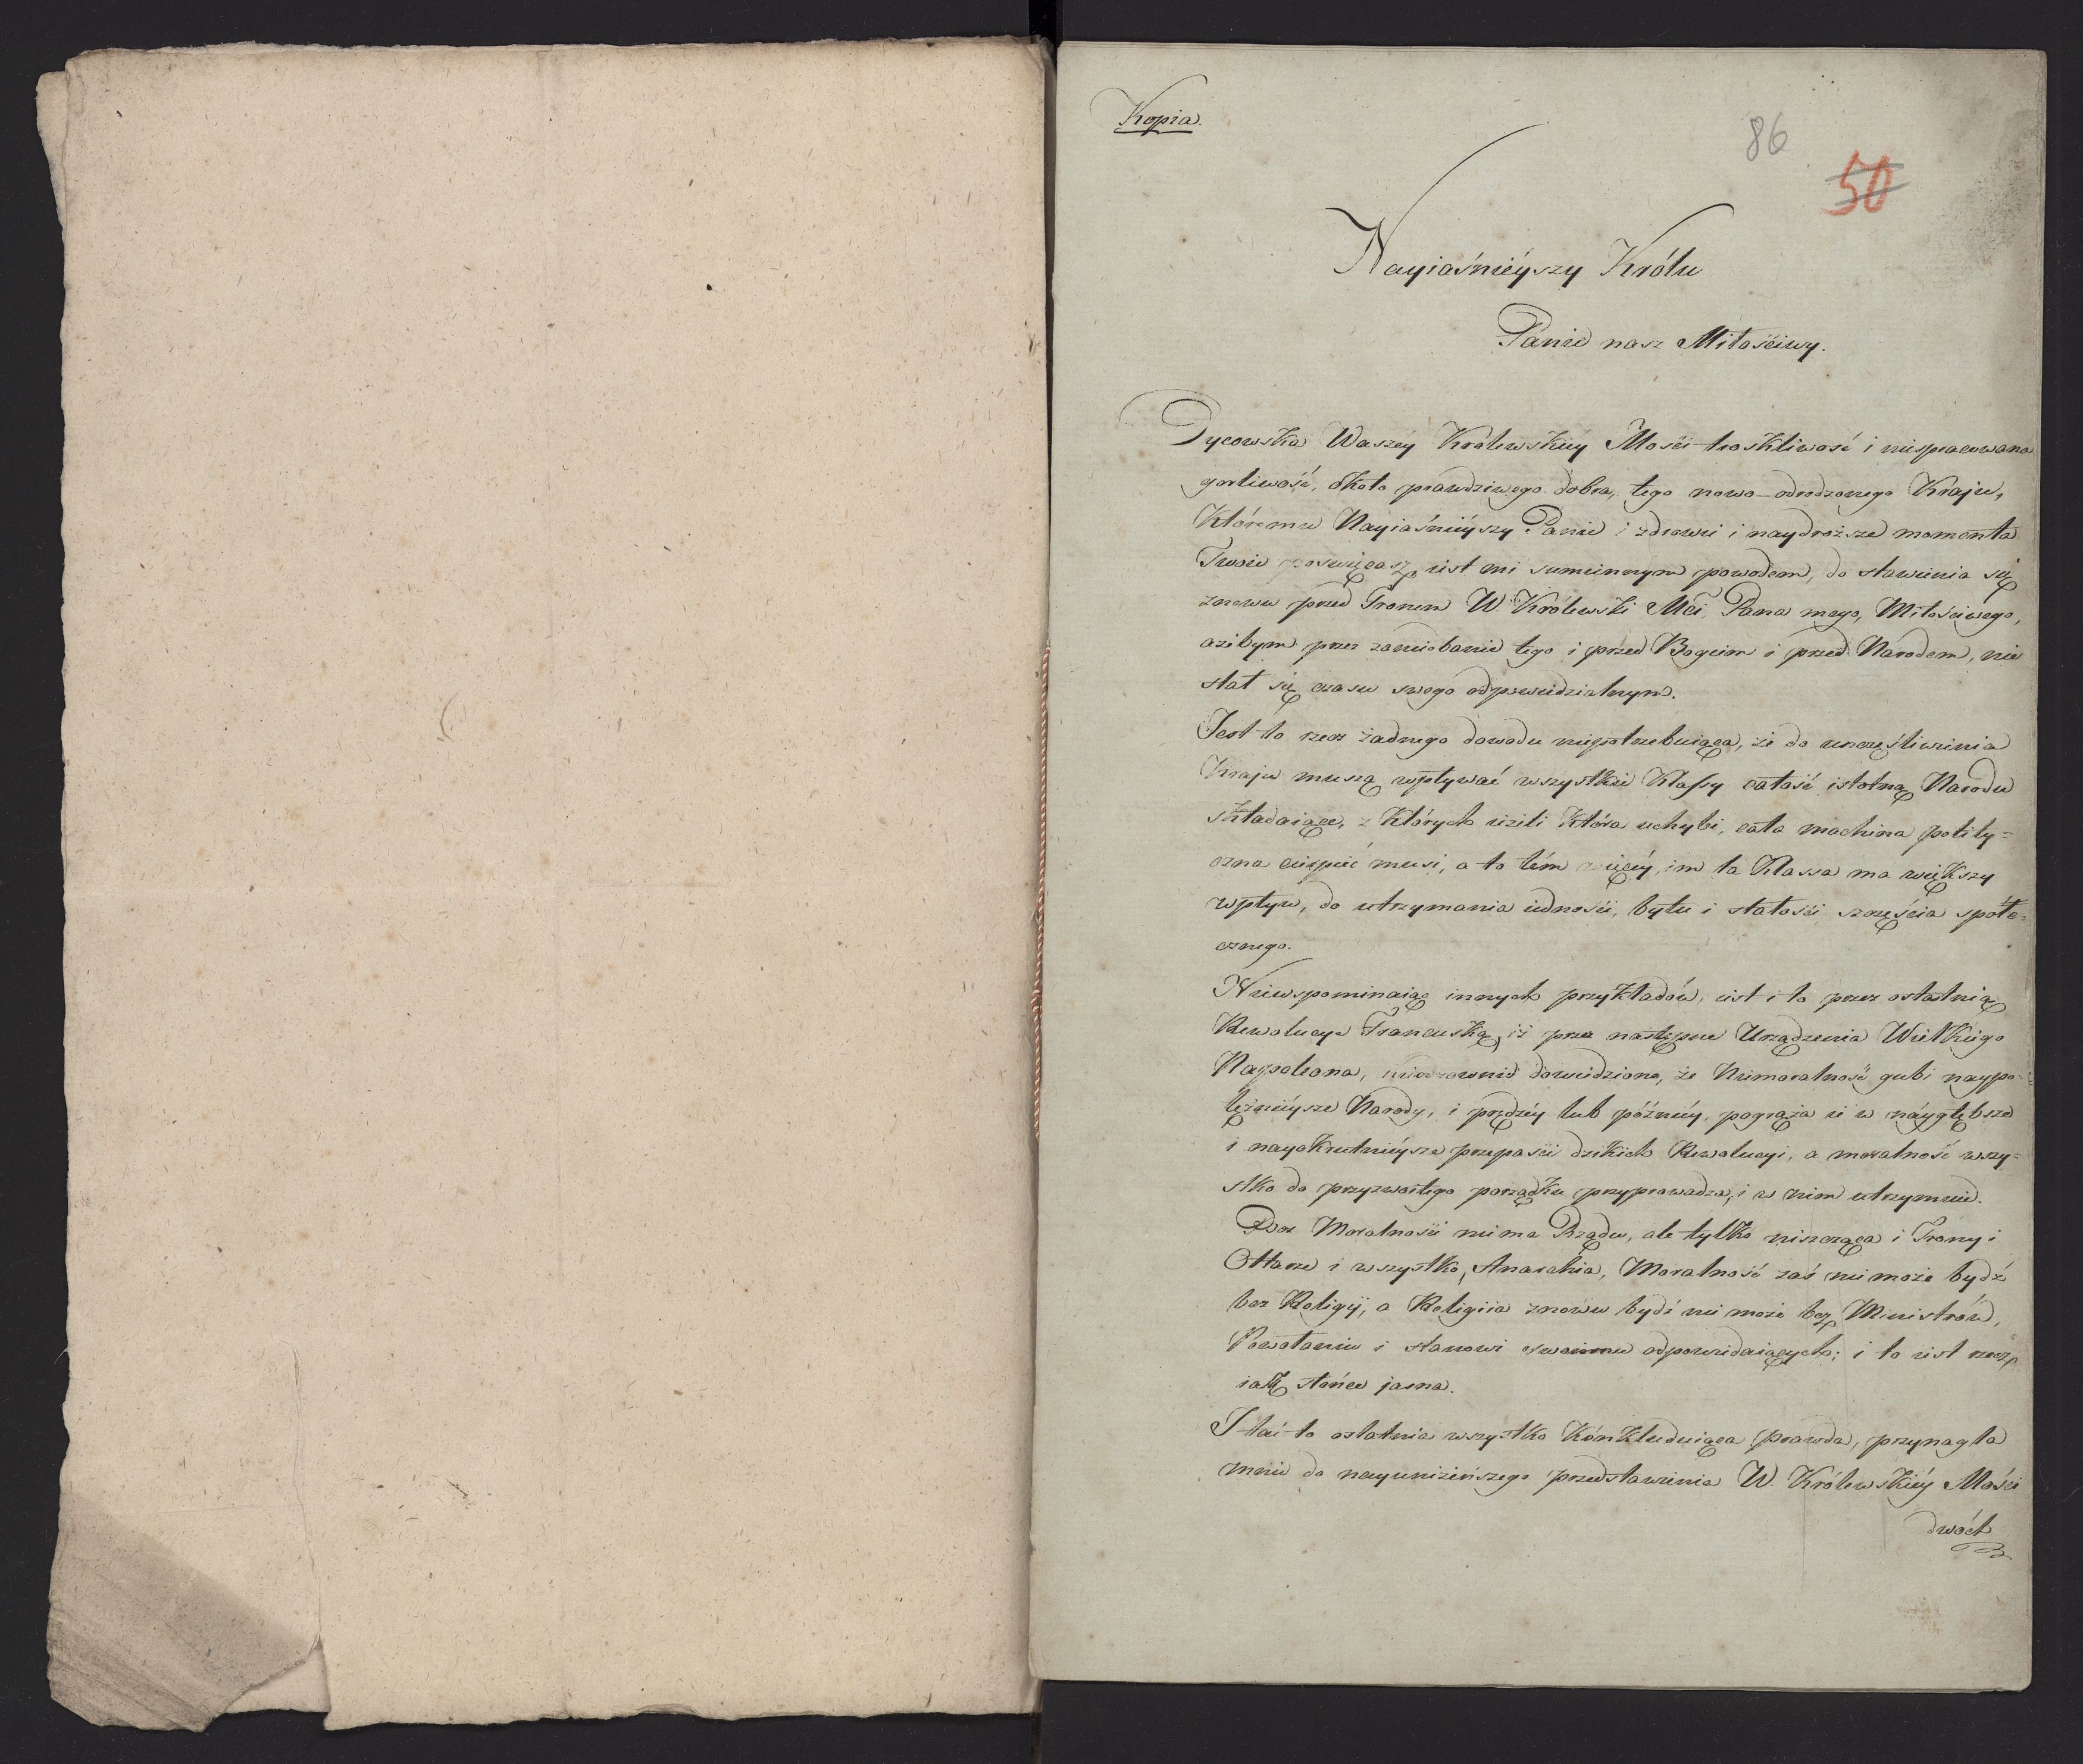 Kopia.
86
50
Nayiaśnieyszy Królu
Panie nasz Miłościwy.
Oycowska Waszéy Królewskiéy Mości troskliwość i niespracowana
gorliwość, około prawdziwego dobra, tego nowo-odrodzonego Kraju,
któremu Nayiaśnieyszy Panie i zdrowie i naydroższe momenta
Twoie poswięcasz, iest mi sumiennym powodem, do stawienia się
znowu przed Tronem W. Królewski Mci Pana mego, Miłościwego,
ażebym przez zaniedbanie tego i przed Bogiem i przed Narodem, nie
stał się czasu swego odpowiedzialnym.
Jest to rzecz żadnego dowodu niepotrzebuiąca, że do uszczęśliwienia
Kraju muszą wpływać wszystkie Klassy całość istotną Narodu
składaiące, z których ieżeli która uchybi, cała machina polity=
czna cierpieć musi, a to tém więcéy, im ta Klassa ma większy
wpływ, do utrzymania iedności, bytu i stałości szczęścia społe=
cznego.
Niewspominaiąc innych przykładów, iest i to przez ostatnią
Rewolucyę Francuską, iż przez następne Urządzenia Wielkiego
Napoleona, dowiedziono, że Niemoralność gubi naypo=
tężnieysze Narody, i prędzéy lub późniéy, pogrąża ie w náygłębsze
i nayokrutnieysze przepaści dzikich Rewolucyi, a moralność wszy=
stko do przyzwoitego porządku przyprowadza, i w nim utrzymuie.
Bez Moralności niema Rządu, ale tylko niszcząca i Trony i
Ołtarze i wszystko, Anarchia, Moralność zaś nie może bydź
bez Religij, a Religiia znowu bydź nie może bez Ministrów,
Powołaniu i stanowi swoiemu odpowiedaiących; i to iest rzecz
iak słońce jasna.
I tać to ostatnia wszystko konkluduiąca prawda, przynagla
mnie do nayuniżeńszego przedstawienia W. Królewskiéy Mości
dwóch